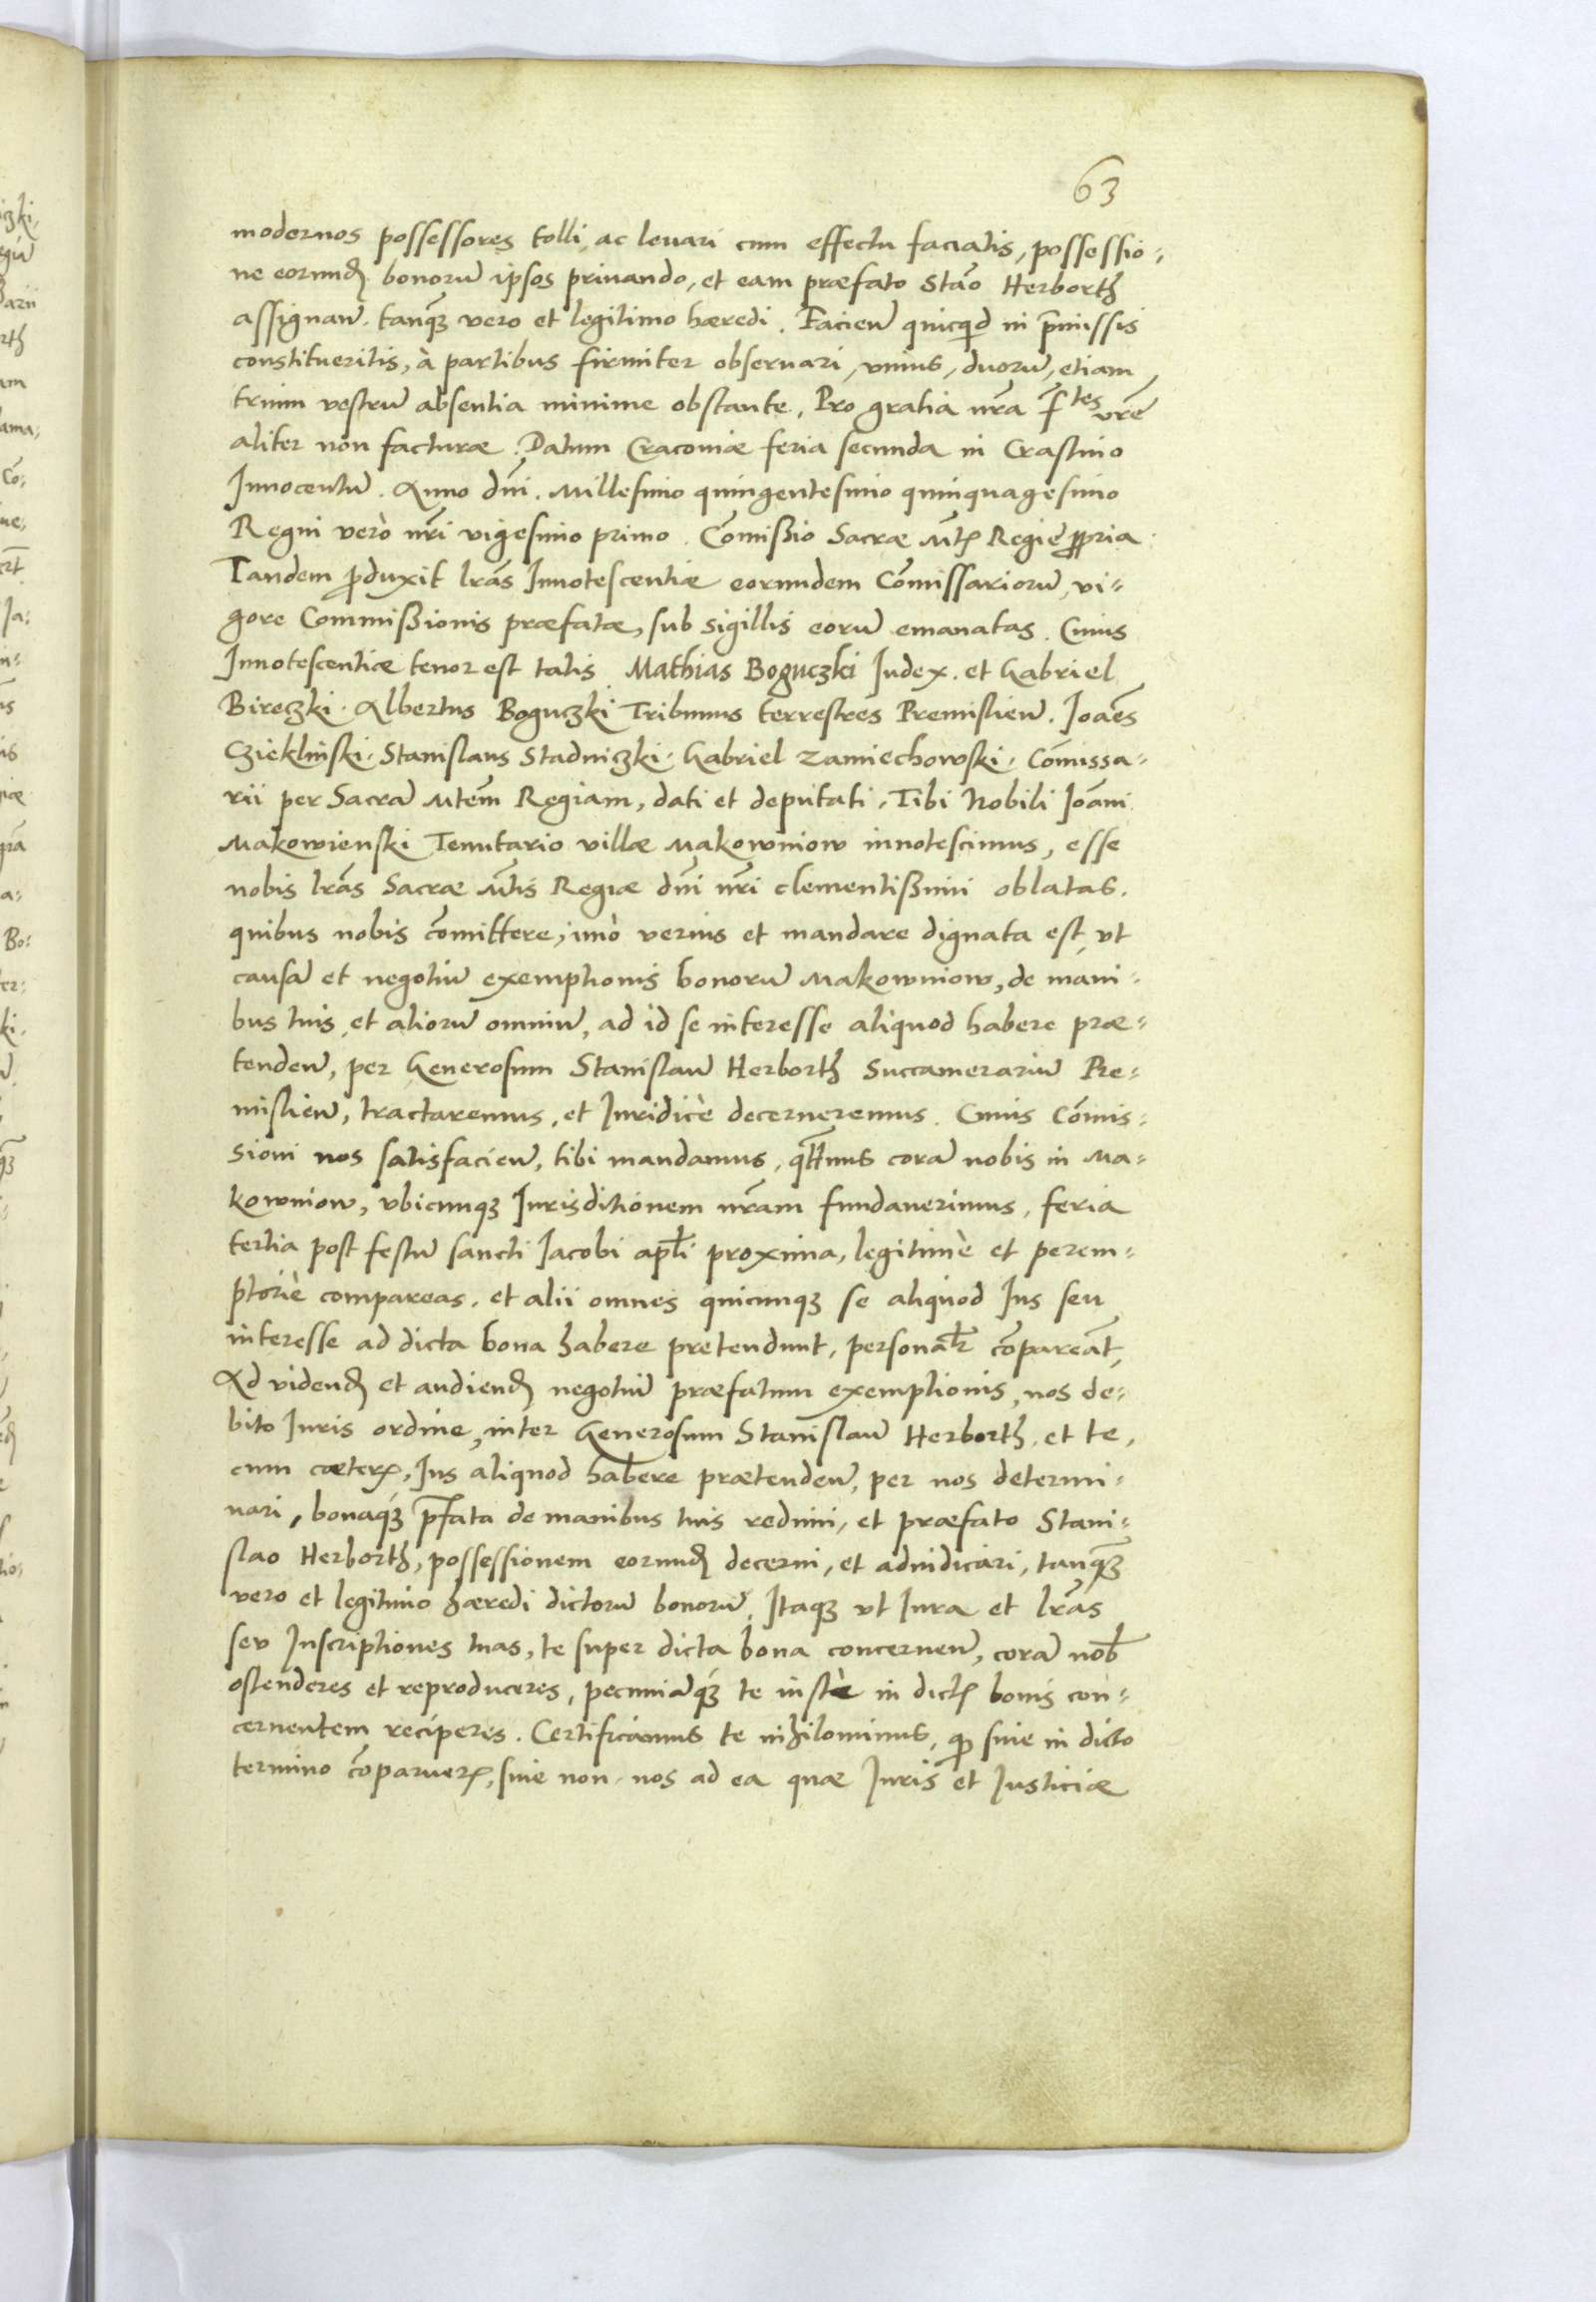 63
modernos possessores tolli, ac leuari cum effectu faciatis, possessio-
ne eorund. bonorū ipsos priuando, et eam præfato Stāo Herborth
assignan. tanq̄ vero et legitimo hæredi. Facien quicquid in p̄missis
constitueritis, à partibus firmiter obseruari, vnius, duorū, etiam
trium vestrū absentia minime obstante. Pro gratia nrā f tes vrē
aliter non facturæ. Datum Cracoviæ feria secunda in Crastino
Innocentū. Anno dnī. Millesimo quingentesimo quinquagesimo
Regni verò nrī vigesimo primo. Cōmißio Sacræ Mtis Regiē ppria
Tandem p̄duxit lrās Innotescentiæ eorundem Cōmissariorū, vi-
gore Commißionis præfatæ, sub sigillis eorū emanatas. Cuius
Innotescentiæ tenor est talis Mathias Boguczki Iudex. et Gabriel
Bireczki. Albertus Boguczki Tribunus terrestres Premislien. Ioāes
Czieklinski. Stanislaus Stadniczki. Gabriel Zamiechowski. Cōmissa-
rii per Sacrā Mtēm Regiam, dati et deputati. Tibi Nobili Ioāni
Makowienski Tenutario villæ Makowniow innotescimus, esse
nobis lrās Sacræ Mtis Regiæ dnī nrī clementißimi oblatas.
quibus nobis cōmittere, imò verius et mandare dignata est, vt
causā et negotiū exemptionis bonorū Makowniow, de mani-
bus tuis, et aliorū omniū, ad id se interesse aliquod habere præ-
tenden, per Generosum Stanislaū Herborth Succamerariū Pre-
mislien, tractaremus, et Iuridicè decerneremus. Cuius Cōmis-
sioni nos satisfacien, tibi mandamus, q̄ttnus corā nobis in Ma-
kowniow, vbicunq̄ Iurisditionem nrām fundauerimus, feria
tertia post festū sancti Iacobi apli proxima, legitimè et perem-
ptoriè compareas, et alii omnes quicunq̄ se aliquod Ius seu
interesse ad dicta bona habere pretendunt, personalr cōpareāt,
Ad vidend. et audiend. negotiū præfatum exemptionis, nos de-
bito Iuris ordine, inter Generosum Stanislaū Herborth. et te,
cum cæteris, Ius aliquod habere prætenden, per nos determi-
nari, bonaq́ p̄fata de manibus tuis redimi, et præfato Stani-
slao Herborth, possessionem eorund. decerni, et adiudicari, tanq̄
vero et legitimo hæredi dictorū bonorū. Itaq̄ vt Iura et lrās
seu Inscriptiones tuas, te super dicta bona concernen, corā nob
ostenderes et reproduceres, pecuniāq́ te iustè in dictis bonis con-
cernentem reciperes. Certificamus te nihilominus, q siue in dicto
termino cōparueris, siue non, nos ad ea quæ Iuris et Iusticiæ